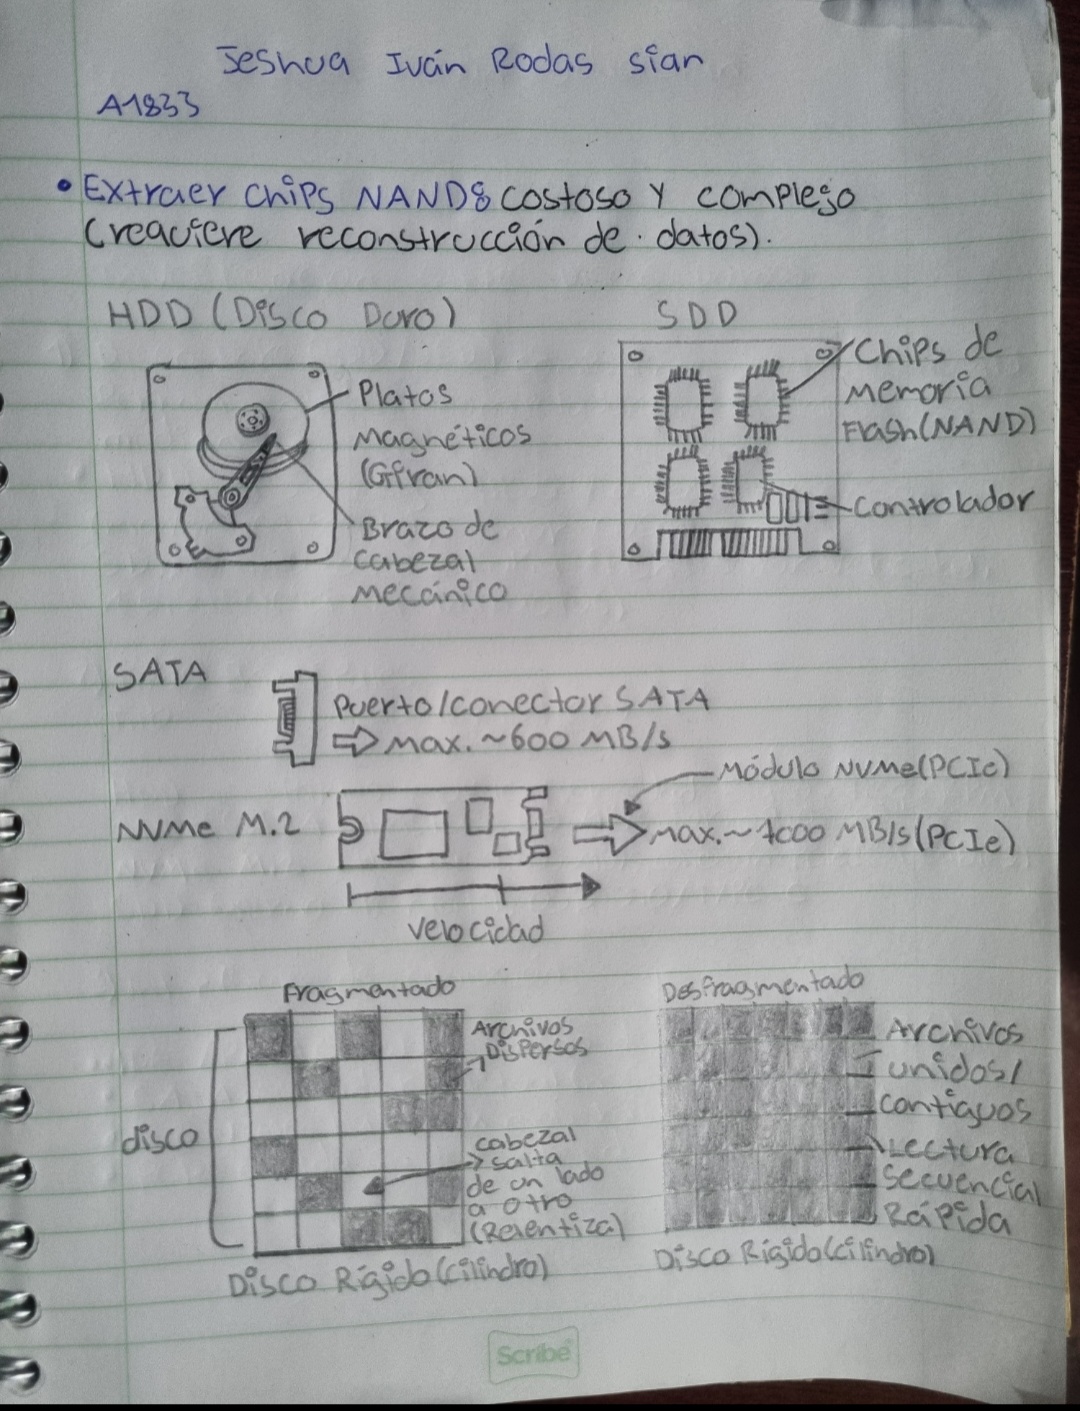 Jeshua Iván Rodas sian
A1833
• Extraer chips NAND: costoso y complejo
(requiere reconstrucción de datos).
HDD (Disco Duro)
Platos
Magnéticos
(Giran)
Brazo de
cabezal
mecánico
SDD
Chips de
memoria
Flash(NAND)
Controlador
SATA
Puerto/conector SATA
Max. ~600 MB/s
NVMe M.2
Módulo NVMe(PCIe)
Max. ~7000 MB/s(PCIe)
Velocidad
Fragmentado
disco
Archivos
Dispersos
cabezal
salta
de un lado
a otro
(Relentiza)
Disco Rígido(cilindro)
Desfragmentado
Archivos
unidos/
contiguos
Lectura
Secuencial
Rápida
Disco Rígido(cilindro)
Scribe